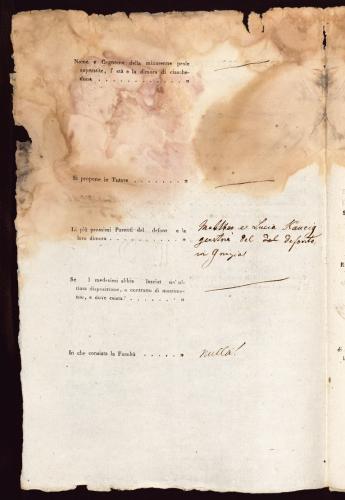 Nome e Cognome della minorenne prole
superstite, l' età e la dimora di ciasche-
duno . . . . . . . . . . . . „
Si propone in Tutore . . . . . . . „
Li più prossimi Parenti del defonto e la
loro dimora . . . . . . . . . . . „
Matthao e Lucia
genitori del defonto
in
Se i medesimi abbia lasciat un' ul-
tima disposizione, o contratto di matrimo-
nio, e dove esista? . . . . . . . „
In che consista la Facoltà . . . . . . „
nulla!